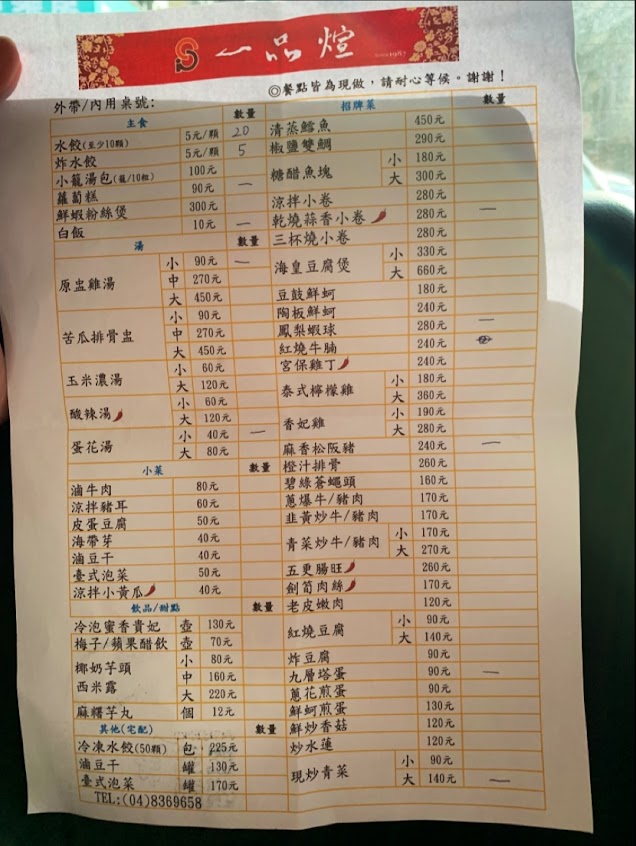 一品煊
since 1987
◎餐點皆為現做，請耐心等候。謝謝！
外帶/內用桌號：
主食 數量
水餃(至少10顆) 5元/顆 20
炸水餃 5元/顆 5
小籠湯包(籠/10粒) 100元
蘿蔔糕 90元 一
鮮蝦粉絲煲 300元
白飯 10元 一
湯 數量
原盅雞湯 小 90元 一
中 270元
大 450元
苦瓜排骨盅 小 90元
中 270元
大 450元
玉米濃湯 小 60元
大 120元
酸辣湯 小 60元
大 120元
蛋花湯 小 40元 一
大 80元
小菜 數量
滷牛肉 80元
涼拌豬耳 60元
皮蛋豆腐 50元
海帶芽 40元
滷豆干 40元
臺式泡菜 50元
涼拌小黃瓜 40元
飲品/甜點 數量
冷泡蜜香貴妃 壺 130元
梅子/蘋果醋飲 壺 70元
椰奶芋頭西米露 小 80元
中 160元
大 220元
麻糬芋丸 個 12元
其他(宅配) 數量
冷凍水餃(50顆) 包 225元
滷豆干 罐 130元
臺式泡菜 罐 170元
TEL:(04)8369658
招牌菜 數量
清蒸鱈魚 450元
椒鹽雙鯛 290元
糖醋魚塊 小 180元
大 300元
涼拌小卷 280元
乾燒蒜香小卷 280元 一
三杯燒小卷 280元
海皇豆腐煲 小 330元
大 660元
豆鼓鮮蚵 180元
陶板鮮蚵 240元
鳳梨蝦球 280元 一
紅燒牛腩 240元
宮保雞丁 240元
泰式檸檬雞 小 180元
大 360元
香妃雞 小 190元
大 280元
麻香松阪豬 240元 一
橙汁排骨 260元
碧綠蒼蠅頭 160元
蔥爆牛/豬肉 170元
韭黃炒牛/豬肉 170元
青菜炒牛/豬肉 小 170元
大 270元
五更腸旺 260元
劍筍肉絲 170元
老皮嫩肉 120元
紅燒豆腐 小 90元
大 140元
炸豆腐 90元
九層塔蛋 90元 一
蔥花煎蛋 90元
鮮蚵煎蛋 130元
鮮炒香菇 120元
炒水蓮 120元
現炒青菜 小 90元
大 140元 一